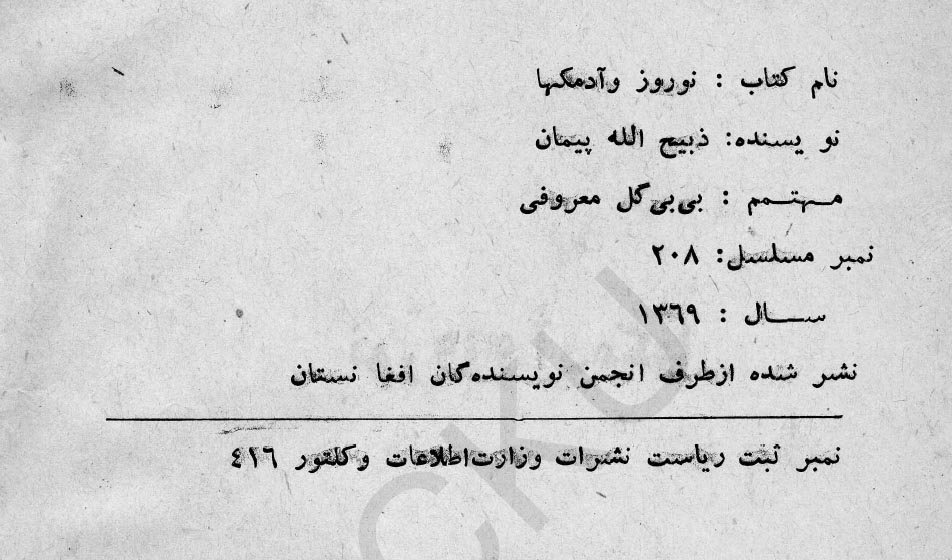 نام کتاب : نوروز وآدمکها
نو یسنده: ذبیح الله پیمان
مـهتـمم : بی‌بی‌گل معروفی
نمبر مسلسل: ۲۰۸
ســـال : ۱۳۶۹
نشر شده ازطرف انجمن نویسنده‌گان افغا نستان
نمبر ثبت ریاست نشرات وزارت‌اطلاعات وکلتور ٤١٦
CKU